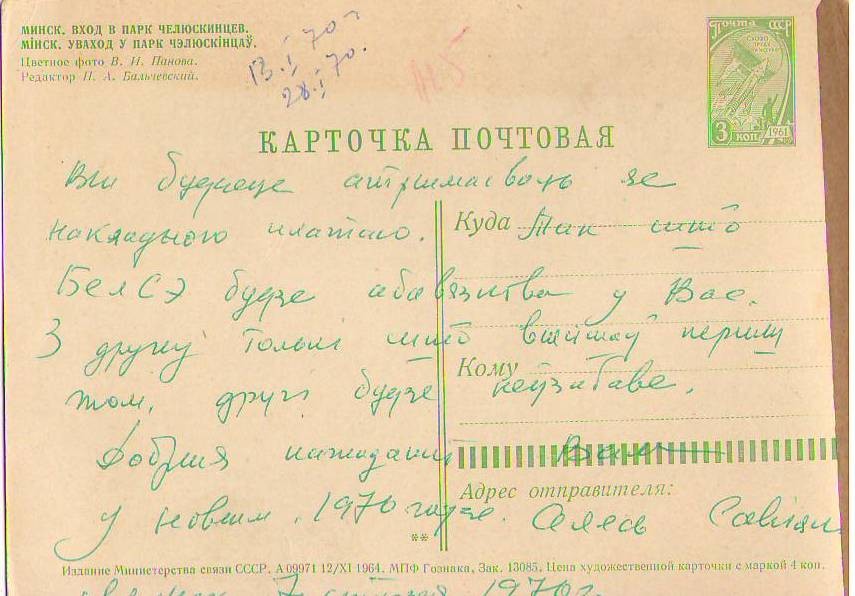 МИНСК. ВХОД В ПАРК ЧЕЛЮСКИНЦЕВ.
МІНСК. УВАХОД У ПАРК ЧЭЛЮСКІНЦАЎ.
Цветное фото В. И. Панова.
Редактор П. А. Бальчевский.
13.I 70 г
28.I 70.
Почта СССР
3 коп 1961
КАРТОЧКА ПОЧТОВАЯ
Вы будзеце атрымліваць за
накладною платаю. Так што
Куда
БелСЭ будзе абавязкова у Вас.
З друку толькі што выйшаў першы
Кому
том, другі будзе неўзабаве.
Добрыя пажаданні Вам
Адрес отправителя:
у новым, 1970 годзе. Алесь
**
Издание Министерства связи СССР. А 09971 12/XI 1964. МПФ Гознака, Зак. 13085. Цена художественной карточки с маркой 4 коп.
7 1970 г.